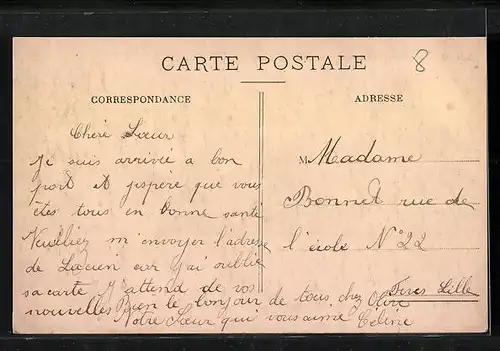 CARTE POSTALE
8
CORRESPONDANCE
ADRESSE
Chère Sœur
Je suis arrivée a bon
port et j'espère que vous
êtes tous en bonne santé
Veuilliez m'envoyer l'adresse
de Lucien car j'ai oublié
sa carte J'attend de vos
nouvelles Bien le bonjour de tous chez Olive
Notre Sœur qui vous aime Céline
M Madame
Bonnet rue de
l'école N° 22
Fives Lille